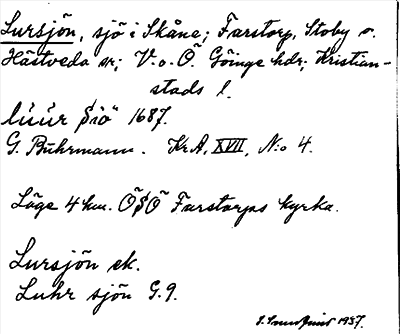 Lursjön, sjö i Skåne; Farstorp, Stoby o.
Hästveda sn; V. o. Ö. Göinge hdr; Kristian-
stads l.
lúúr Siö 1687.
G. Buhrmann. KrA, XVII, N:o 4.
Läge 4 km. ÖSÖ Farstorps kyrka.
Lursjön ek.
Luhr sjön G.9.
1937.